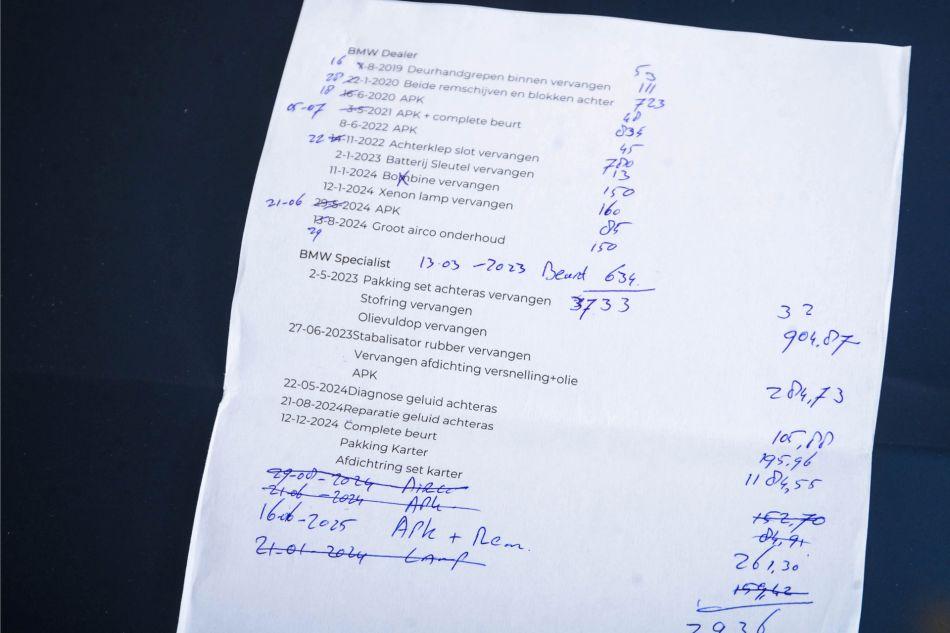 BMW Dealer
16 8-8-2019 Deurhandgrepen binnen vervangen 53
28 22-1-2020 Beide remschijven en blokken achter 111
18 16-6-2020 APK 723
05-07 3-5-2021 APK + complete beurt 48
8-6-2022 APK 834
22 14-11-2022 Achterklep slot vervangen 45
2-1-2023 Batterij Sleutel vervangen 780
11-1-2024 Bobbine vervangen 13
12-1-2024 Xenon lamp vervangen 150
21-06 29-5-2024 APK 160
13-8-2024 Groot airco onderhoud 85
29 150
BMW Specialist 13-03-2023 Beurt 634
2-5-2023 Pakking set achteras vervangen 3733
Stofring vervangen 32
Olievuldop vervangen 904,87
27-06-2023 Stabalisator rubber vervangen
Vervangen afdichting versnelling+olie
APK 284,73
22-05-2024 Diagnose geluid achteras
21-08-2024 Reparatie geluid achteras 105,88
12-12-2024 Complete beurt 195,96
Pakking Karter 1184,55
Afdichtring set karter
29-08-2024 Airco 152,70
21-06-2024 APK 84,91
16-06-2025 APK + Rem. 261,30
21-01-2024 Lamp 159,42
2936